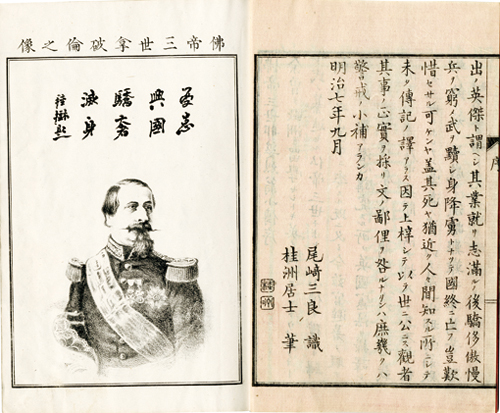 序
出ノ英傑ト謂ツヘシ其業就リ志滿ルノ後驕侈傲慢
兵ヲ窮メ武ヲ黷シ身降虜トナリテ國終ニ亡フ豈歎
惜セサル可ケンヤ蓋其死ヤ猶近ク人ノ聞知スル所ニシテ
未タ傳記ノ譯アラス因テ上梓シテ以テ世ニ公ニス觀者
其事ノ正實ヲ採リ文ノ鄙俚ヲ咎ルナクンハ庶幾クハ
警戒ノ小補アランカ
明治七年九月
尾崎三良 識
桂洲居士 筆
佛帝三世拿破倫之像
興國
驕奢
滅身